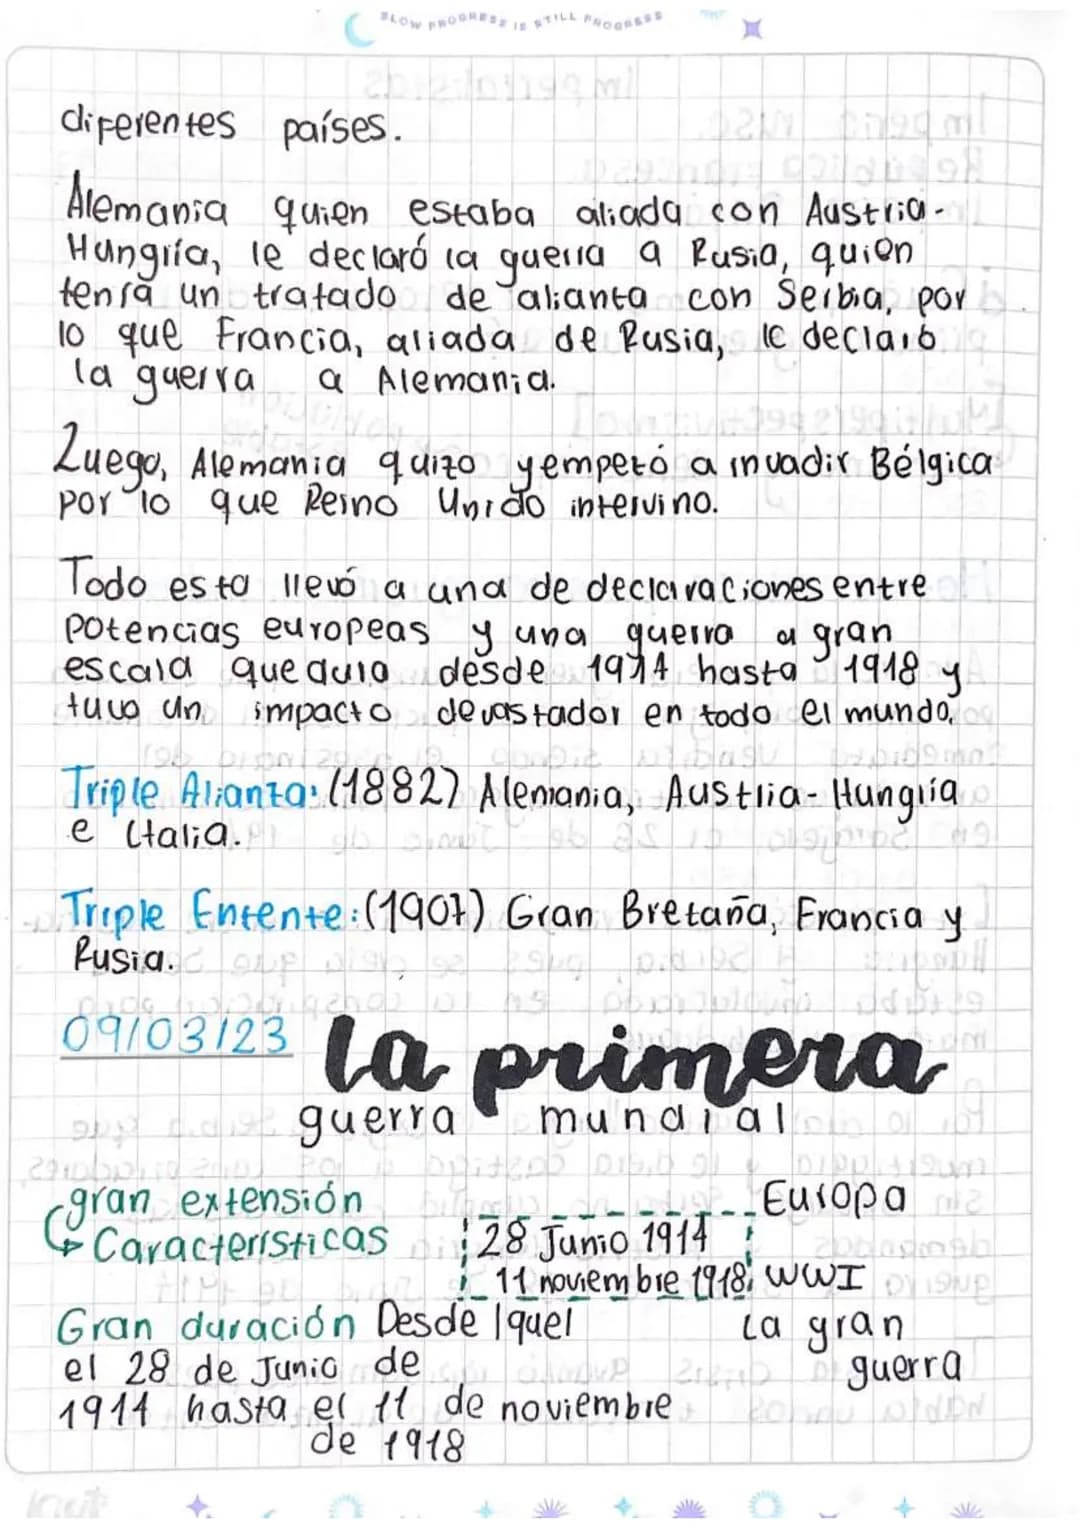 SLOW PROGRESS IS STILL PROGRESS
diferentes países.
Alemania quien estaba aliada con Austria-
Hungría, le declaró la guerra a Rusia, quien
tenía un tratado de alianza con Serbia, por
lo que Francia, aliada de Rusia, le declaró
la guerra a Alemania.
Luego, Alemania quizo y empezó a invadir Bélgica
por lo que Reino Unido intervino.
Todo esto llevó a una de declaraciones entre
potencias europeas y una guerra a gran
escala que duro desde 1914 hasta 1918 y
tuvo un impacto devastador en todo el mundo.
Triple Alianza: (1882) Alemania, Austria-Hungría
e Italia.
Triple Entente: (1907) Gran Bretaña, Francia y
Rusia.
09/03/23 La primera
guerra mundial
gran extensión Europa
Características 28 Junio 1914
11 noviembre 1918 WWI
Gran duración Desde |quel La gran
el 28 de Junio de guerra
1914 hasta el 11 de noviembre
de 1918